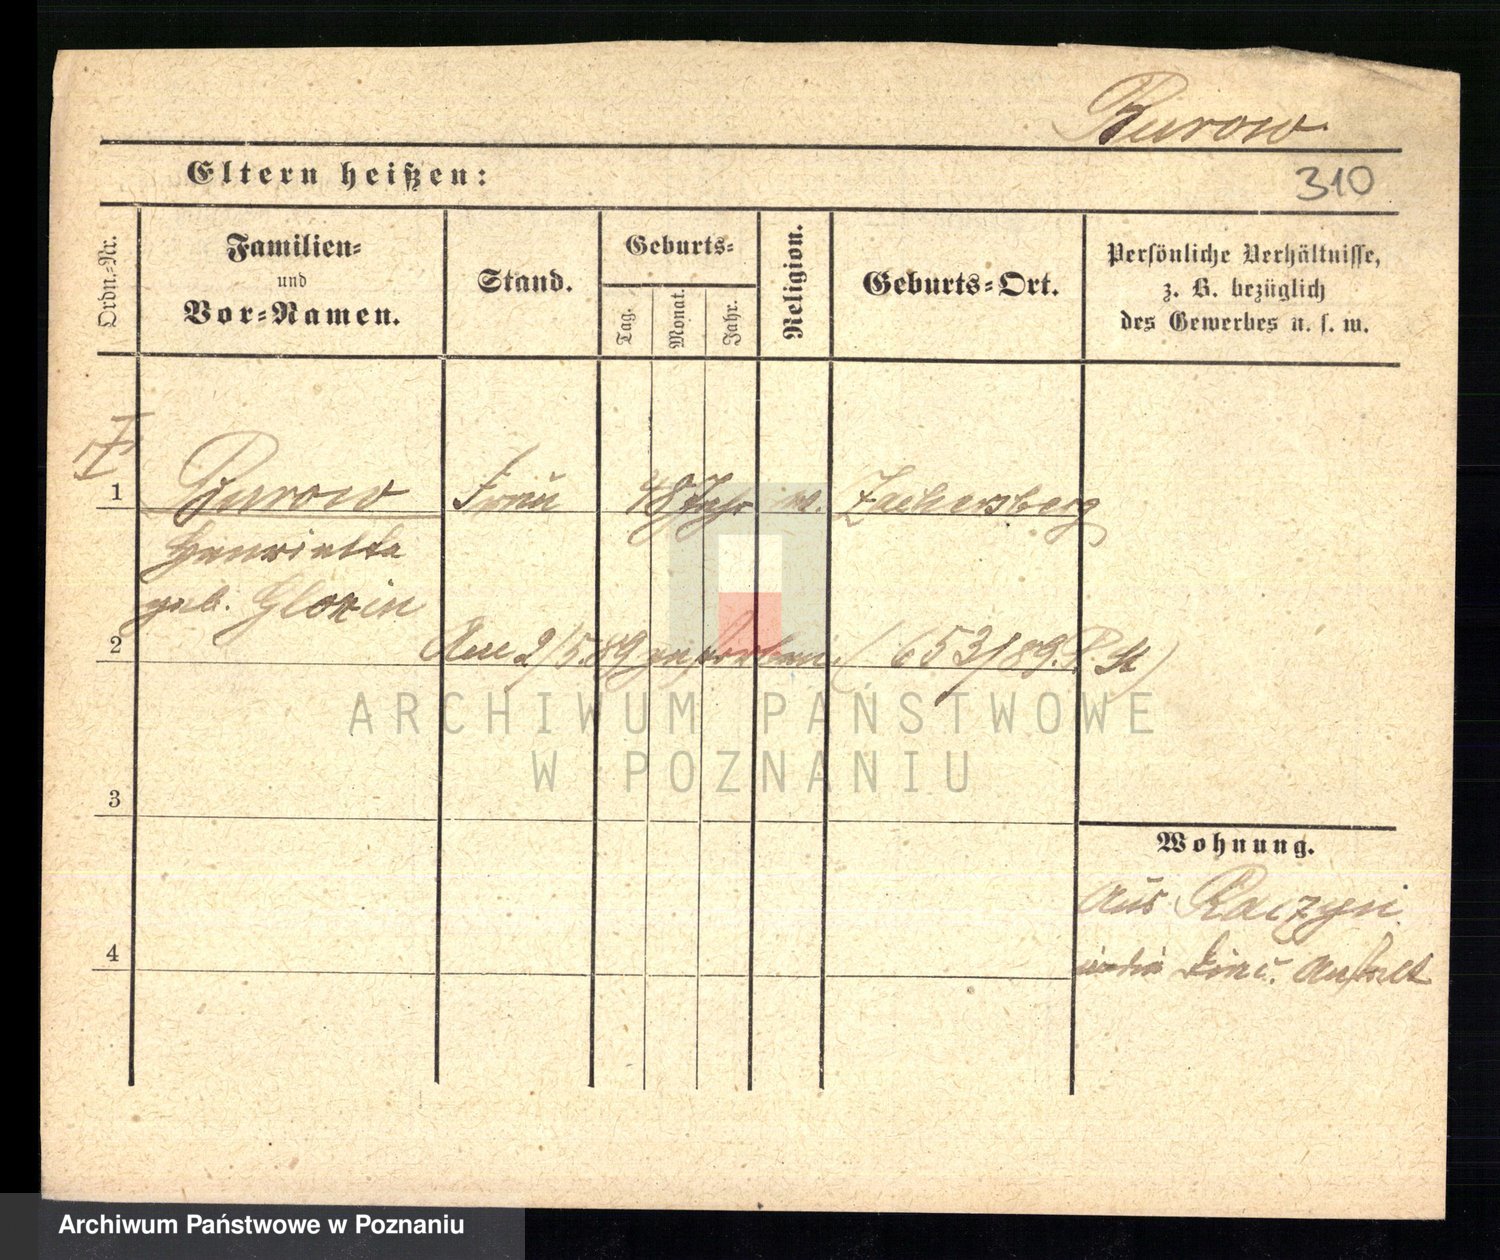 Burow
Eltern heißen:
310
Ordn.-Nr.
Familien-
und
Vor-Namen.
Stand.
Geburts-
Tag.
Monat.
Jahr.
Religion.
Geburts-Ort.
Persönliche Verhältnisse,
z. B. bezüglich
des Gewerbes u. s. w.
1
Burow
Frau
48 Jahr
Zachersberg
Henriette
geb.
2
Am 2/5.89 gestorben. (653/89. P. St)
ARCHIWUM PAŃSTWOWE
W POZNANIU
3
Wohnung.
aus Raczyn
in die Anstalt
4
Archiwum Państwowe w Poznaniu